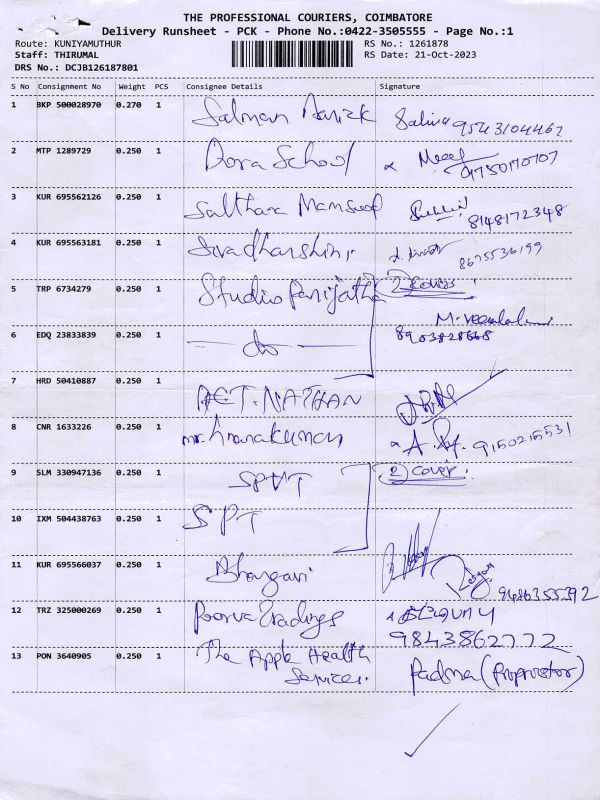 THE PROFESSIONAL COURIERS, COIMBATORE
Delivery Runsheet - PCK - Phone No.:0422-3505555 - Page No.:1
Route: KUNIYAMUTHUR RS No.: 1261878
Staff: THIRUMAL RS Date: 21-Oct-2023
DRS No.: DCJB126187801
S No Consignment No Weight PCS Consignee Details Signature
1 BKP 500028970 0.270 1 Salman 9543104462
2 MTP 1289729 0.250 1 Dora School 9750170707
3 KUR 695562126 0.250 1 Salthar Mansoof 8148172348
4 KUR 695563181 0.250 1 Sivadharshini 8675536199
5 TRP 6734279 0.250 1 Studio Parijatha 2 covers
M. Veeralakshmi
6 EDQ 23833839 0.250 1 do 8903828668
7 HRD 50410887 0.250 1 NATHAN
8 CNR 1633226 0.250 1 mr. 9150215531
9 SLM 330947136 0.250 1 SPVT 2 cover.
10 IXM 504438763 0.250 1 SPT
11 KUR 695566037 0.250 1 Bhargavi 9486355392
12 TRZ 325000269 0.250 1 Poorva Tradings
9843862772
13 PON 3640905 0.250 1 The Apple Health
Services. Padma (Proprietor)